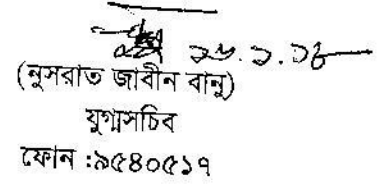 (নুসরাত জাবীন বানু)
যুগ্মসচিব
ফোন :৯৫৪০৫১৭